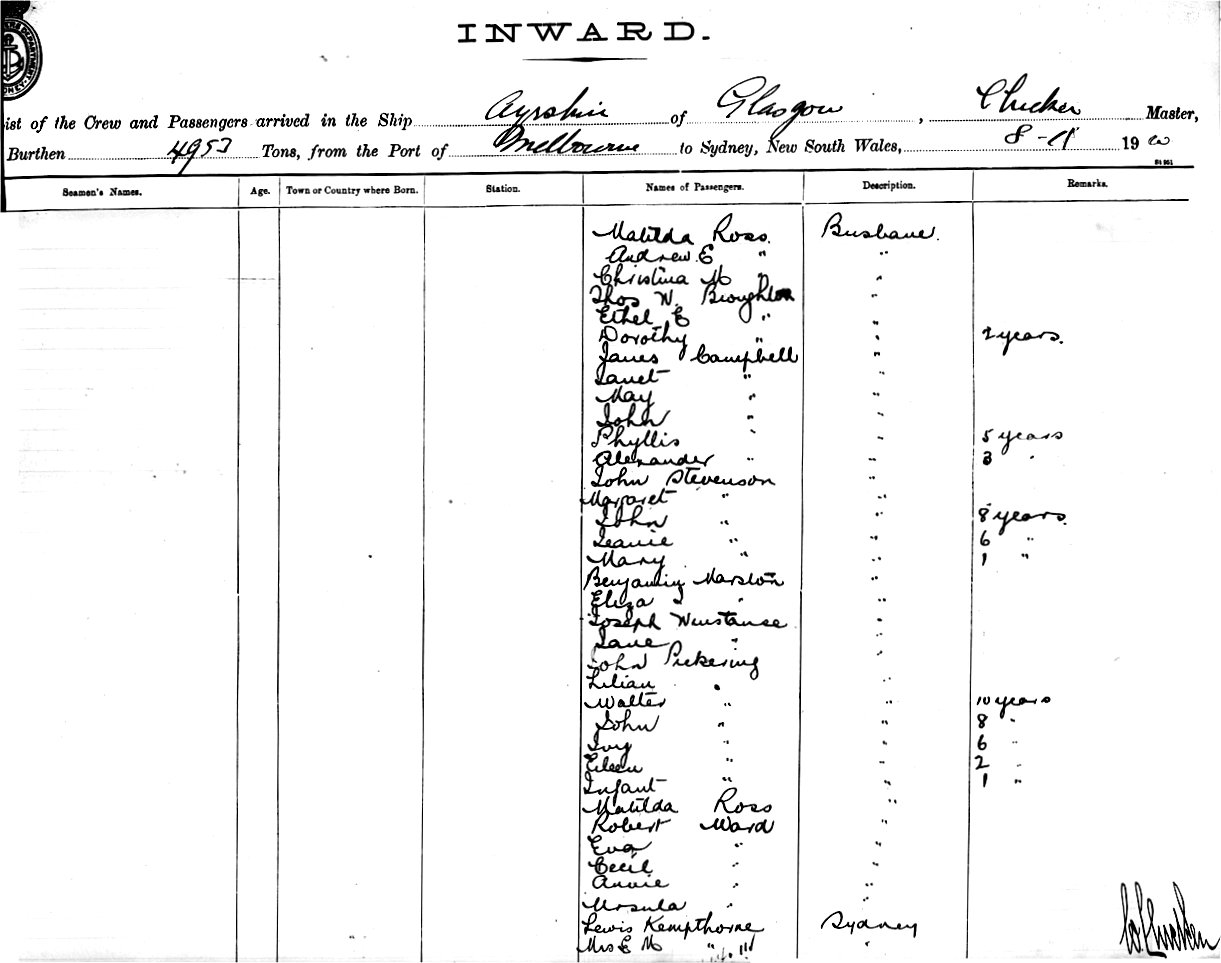 INWARD.
ist of the Crew and Passengers arrived in the Ship Ayrshire of Glasgow , Chicken Master,
Burthen 4953 Tons, from the Port of Melbourne to Sydney, New South Wales, 8-11 19
Seamen's Names. Age. Town or Country where Born. Station. Names of Passengers. Description. Remarks.
Matilda Ross. Brisbane.
Andrew E " "
Christina M " "
Thos W. Broughton "
Ethel E " "
Dorothy " " 2 years.
James Campbell "
Janet " "
May " "
John " "
Phyllis " " 5 years
Alexander " " 3 "
John Stevenson "
Margaret " "
John " " 8 years.
Jeanie " " 6 "
Mary " " 1 "
Benjamin Marston "
Eliza " "
Joseph Winstanse "
Jane " "
John Pickering
Lilian " "
Walter " " 10 years
John " " 8 "
Ivy " " 6 "
Eileen " " 2 "
Infant " " 1 "
Matilda Ross "
Robert Ward "
Eva " "
Cecil " "
Annie " "
Ursula " "
Lewis Kempthorne Sydney
Mrs E M " "